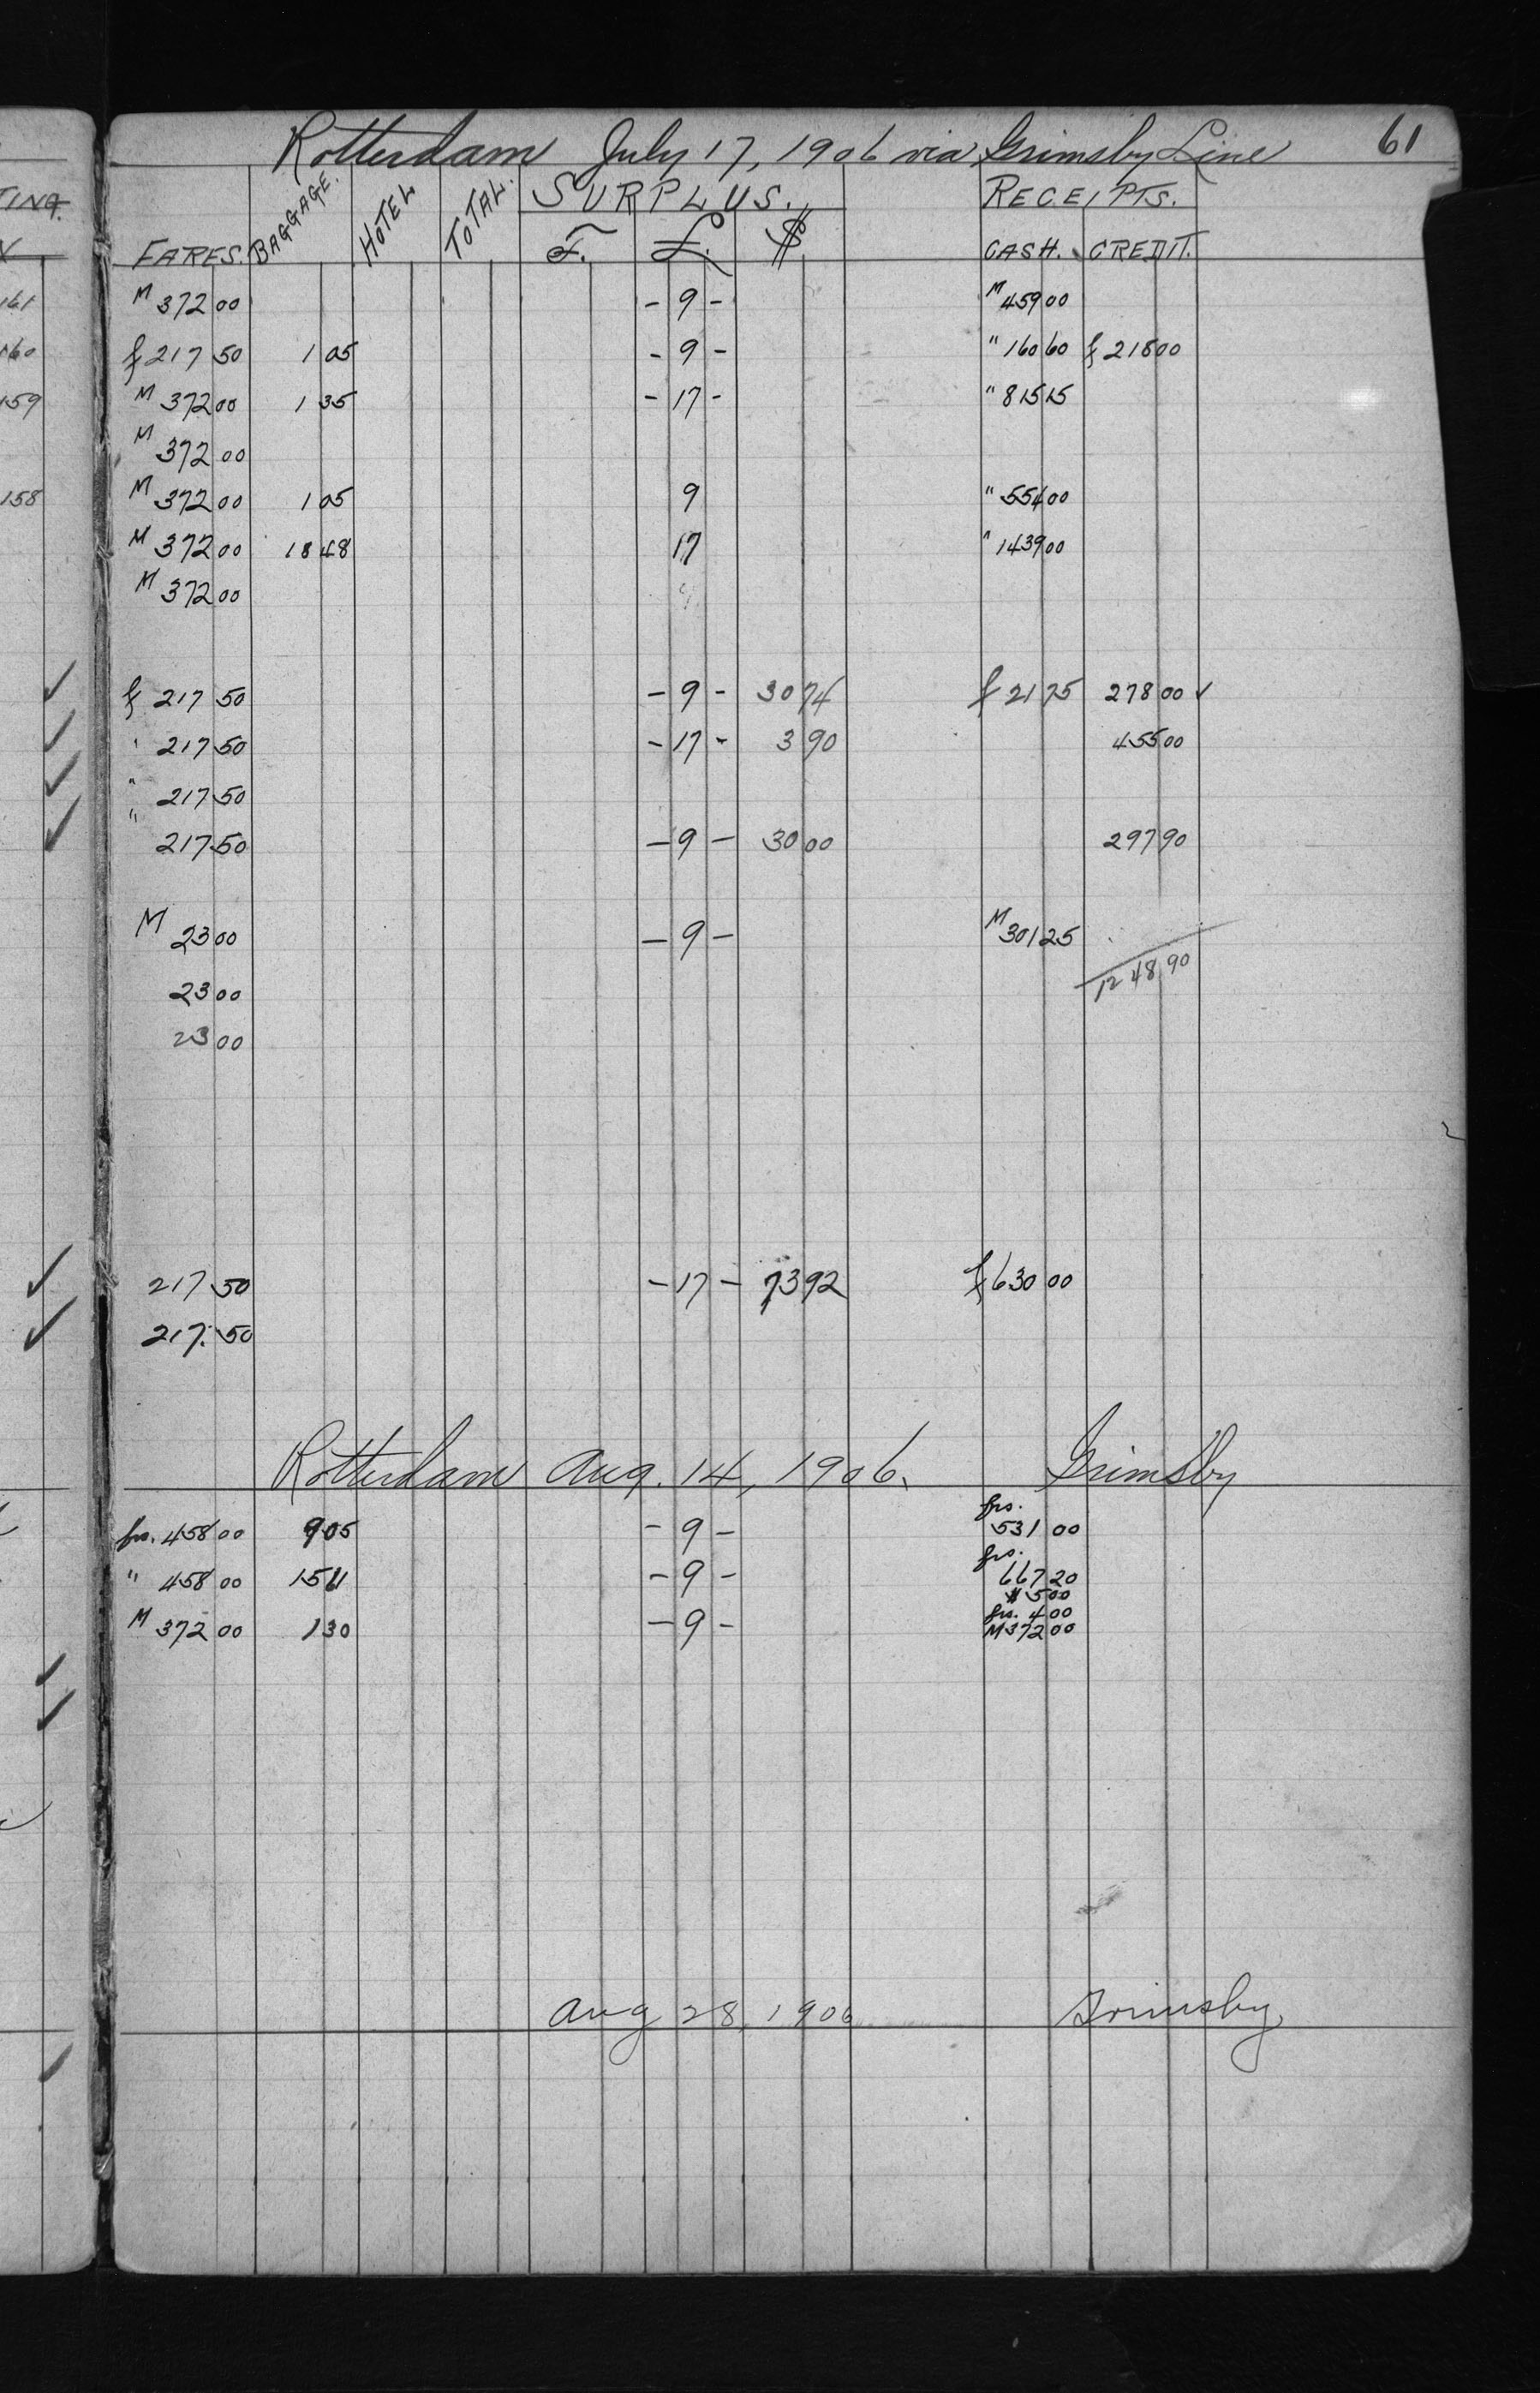 Rotterdam July 17, 1906 via Grimsby Line 61
TING. SURPLUS. RECEIPTS.
FARES. BAGGAGE. HOTEL TOTAL. F. £. $ CASH. CREDIT.
161 M 372 00 - 9 - M 459 00
160 f 217 50 1 05 - 9 - " 160 60 f 218 00
159 M 372 00 1 35 - 17 - " 815 15
M 372 00
158 M 372 00 1 05 9 " 554 00
M 372 00 18 48 17 " 1439 00
M 372 00
f 217 50 - 9 - 30 74 f 21 75 278 00 ✓
" 217 50 - 17 - 3 90 455 00
" 217 50
" 217 50 - 9 - 30 00 297 90
M 23 00 - 9 - M 301 25
23 00 1248 90
23 00
217 50 - 17 - 73 92 f 630 00
217. 50
Rotterdam Aug. 14, 1906. Grimsby
frs. 458 00 9 05 - 9 - frs. 531 00
" 458 00 15 11 - 9 - frs. 667 20
$ 5 00
M 372 00 1 30 - 9 - frs. 4 00
M 372 00
Aug 28, 1906 Grimsby